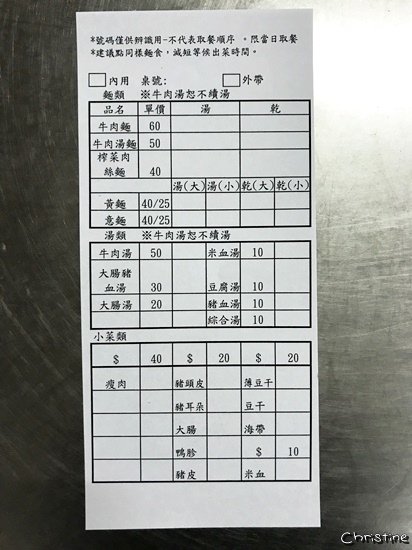 *號碼僅供辨識用-不代表取餐順序 。限當日取餐
*建議點同樣麵食，減短等候出菜時間。
內用 桌號: 外帶
麵類 ※牛肉湯恕不續湯
品名 單價 湯 乾
牛肉麵 60
牛肉湯麵 50
榨菜肉
絲麵 40
湯(大) 湯(小) 乾(大) 乾(小)
黃麵 40/25
意麵 40/25
湯類 ※牛肉湯恕不續湯
牛肉湯 50 米血湯 10
大腸豬
血湯 30 豆腐湯 10
大腸湯 20 豬血湯 10
綜合湯 10
小菜類
$ 40 $ 20 $ 20
瘦肉 豬頭皮 薄豆干
豬耳朵 豆干
大腸 海帶
鴨胗 $ 10
豬皮 米血
Christine